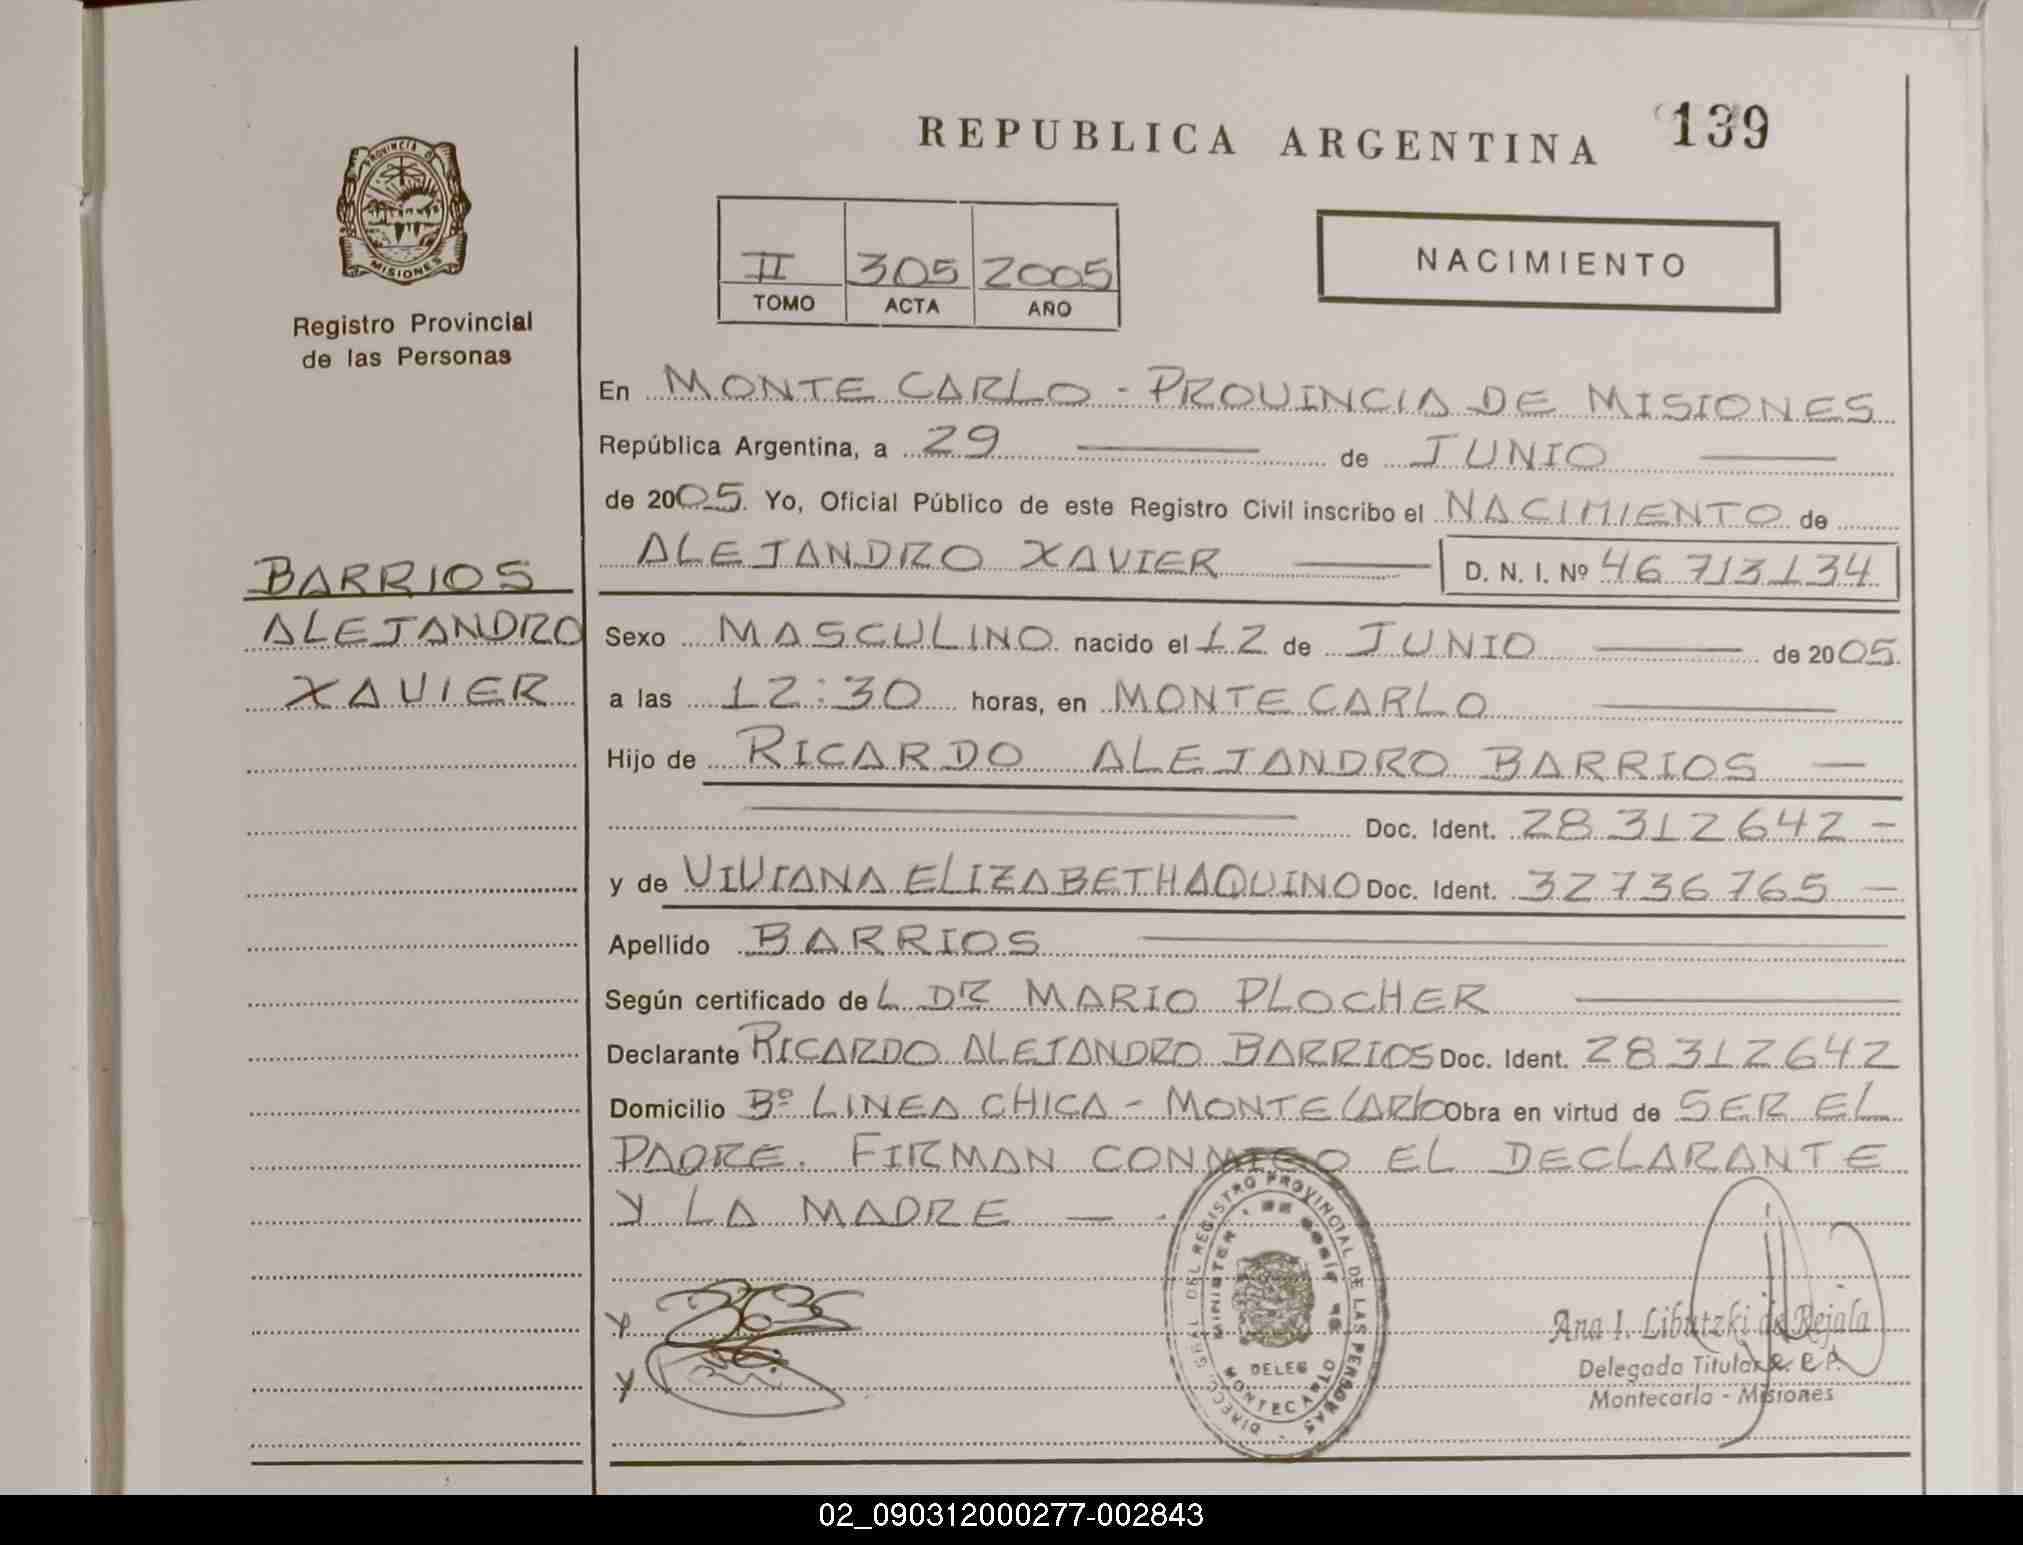 REPUBLICA ARGENTINA 139
PROVINCIA DE
MISIONES
Registro Provincial
de las Personas
II 305 2005
TOMO ACTA AÑO
NACIMIENTO
BARRIOS
ALEJANDRO
XAVIER
En MONTE CARLO - PROVINCIA DE MISIONES
República Argentina, a 29 de JUNIO
de 2005. Yo, Oficial Público de este Registro Civil inscribo el NACIMIENTO de
ALEJANDRO XAVIER D. N. I. Nº 46 713134
Sexo MASCULINO nacido el 12 de JUNIO de 2005.
a las 12:30 horas, en MONTE CARLO
Hijo de RICARDO ALEJANDRO BARRIOS —
Doc. Ident. 28 312642 -
y de VIVIANA ELIZABETH AQUINO Doc. Ident. 32736765 —
Apellido BARRIOS
Según certificado de L DR MARIO PLOCHER
Declarante RICARDO ALEJANDRO BARRIOS Doc. Ident. 28312642
Domicilio Bº LINEA CHICA - MONTECARLO Obra en virtud de SER EL
PADRE. FIRMAN CONMIGO EL DECLARANTE
Y LA MADRE — -
DIRECC. GRAL DEL REGISTRO PROVINCIAL DE LAS PERSONAS
DELEG
MONTECARLO
Ana I. Libutzki de Rejala
Delegada Titular R. P.
Montecarlo - Misiones
02_090312000277-002843